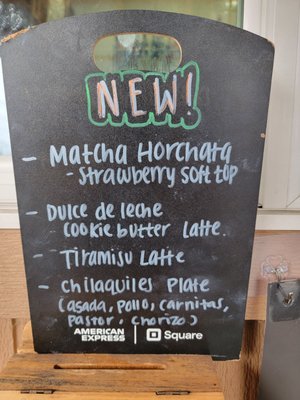 NEW!
- Matcha Horchata
- Strawberry soft top
- Dulce de leche
cookie butter Latte.
- Tiramisu Latte
- Chilaquiles Plate
(asada, pollo, carnitas,
pastor, chorizo)
AMERICAN EXPRESS | Square